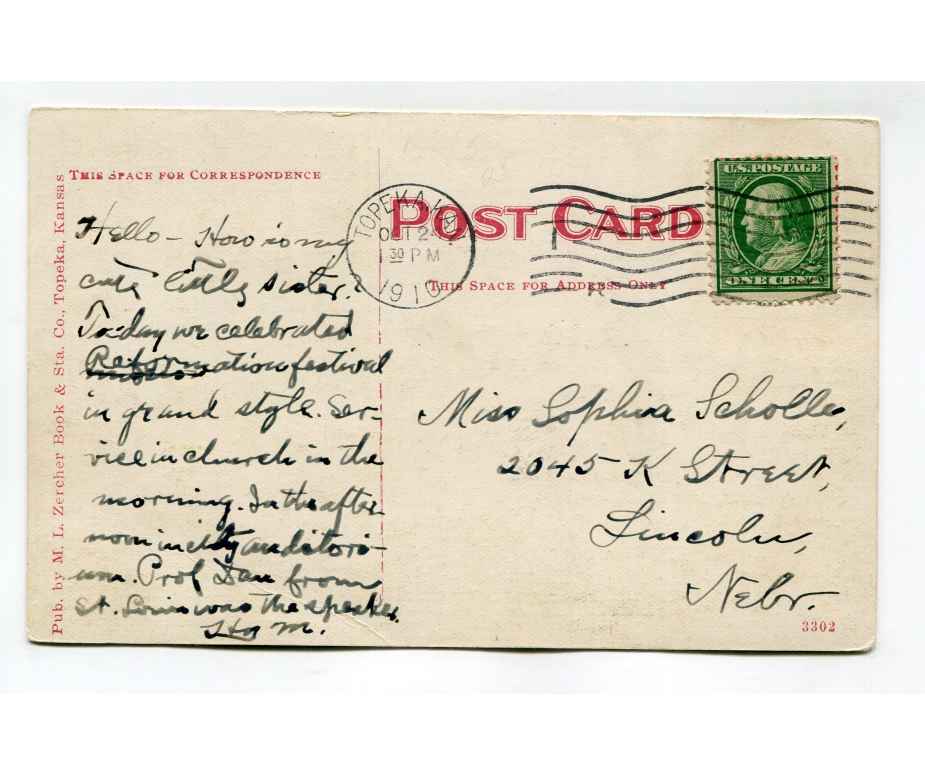 THIS SPACE FOR CORRESPONDENCE
Hello - How is my
cute little sister?
To-day we celebrated
Reformation festival
in grand style. Ser-
vice in church in the
morning. In the after-
noon in city auditori-
um. Prof Dau from
St. Louis was the speaker.
M.
Pub. by M. L. Zercher Book & Sta. Co., Topeka, Kansas
POST CARD
THIS SPACE FOR ADDRESS ONLY
TOPEKA, KAN.
OCT 2
1 30 PM
1910
U.S. POSTAGE
ONE CENT
Miss Sophia Scholle,
2045 K Street,
Lincoln,
Nebr.
3302